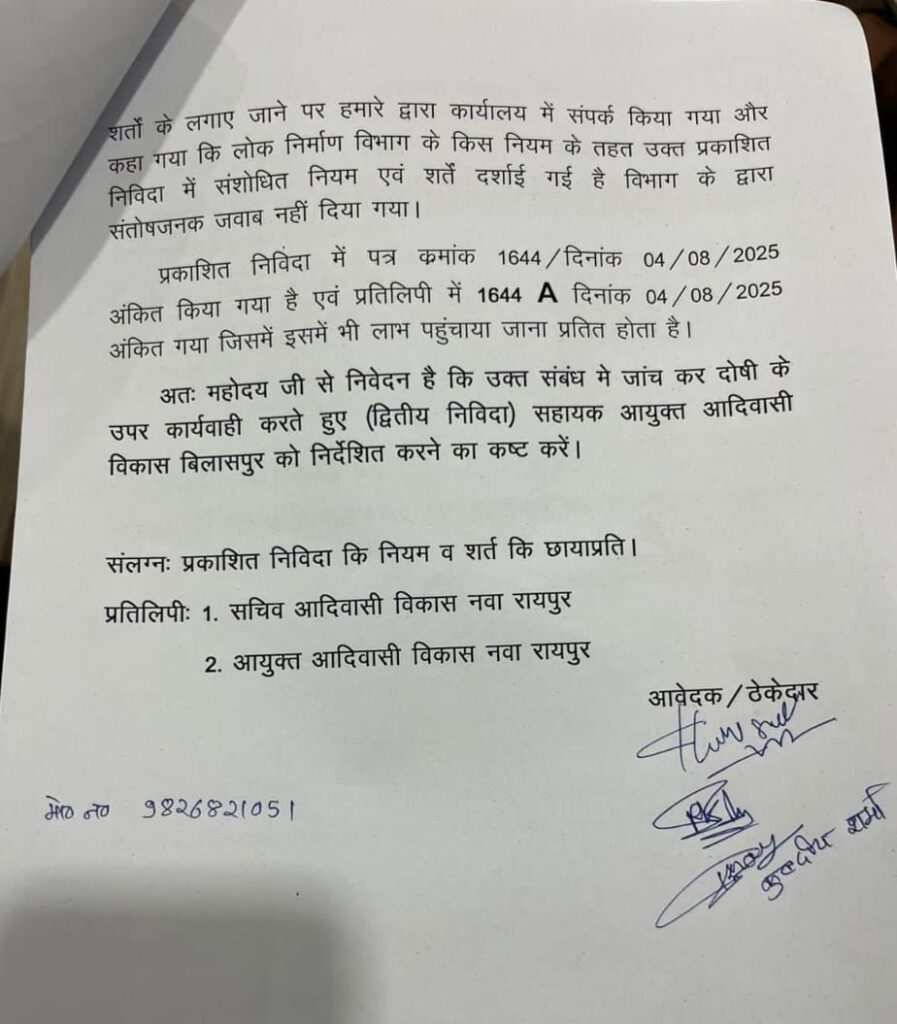 शर्तों के लगाए जाने पर हमारे द्वारा कार्यालय में संपर्क किया गया और
कहा गया कि लोक निर्माण विभाग के किस नियम के तहत उक्त प्रकाशित
निविदा में संशोधित नियम एवं शर्ते दर्शाई गई है विभाग के द्वारा
संतोषजनक जवाब नहीं दिया गया।
प्रकाशित निविंदा में पत्र कमांक 1644/दिनांक 04/08/2025
अंकित किया गया है एवं प्रतिलिपी में 1644 A दिनांक 04/08/2025
अंकित गया जिसमें इसमें भी लाभ पहुंचाया जाना प्रतित होता है।
अतः महोदय जी से निवेदन है कि उक्त संबंध मे जांच कर दोषी के
उपर कार्यवाही करते हुए (द्वितीय निविदा) सहायक आयुक्त आदिवासी
विकास बिलासपुर को निर्देशित करने का कष्ट करें।
संलग्नः प्रकाशित निविदा कि नियम व शर्त कि छायाप्रति।
प्रतिलिपीः 1. सचिव आदिवासी विकास नवा रायपुर
2. आयुक्त आदिवासी विकास नवा रायपुर
आवेदक/ठेकेदार
मो० न० 9826821051
शर्मा